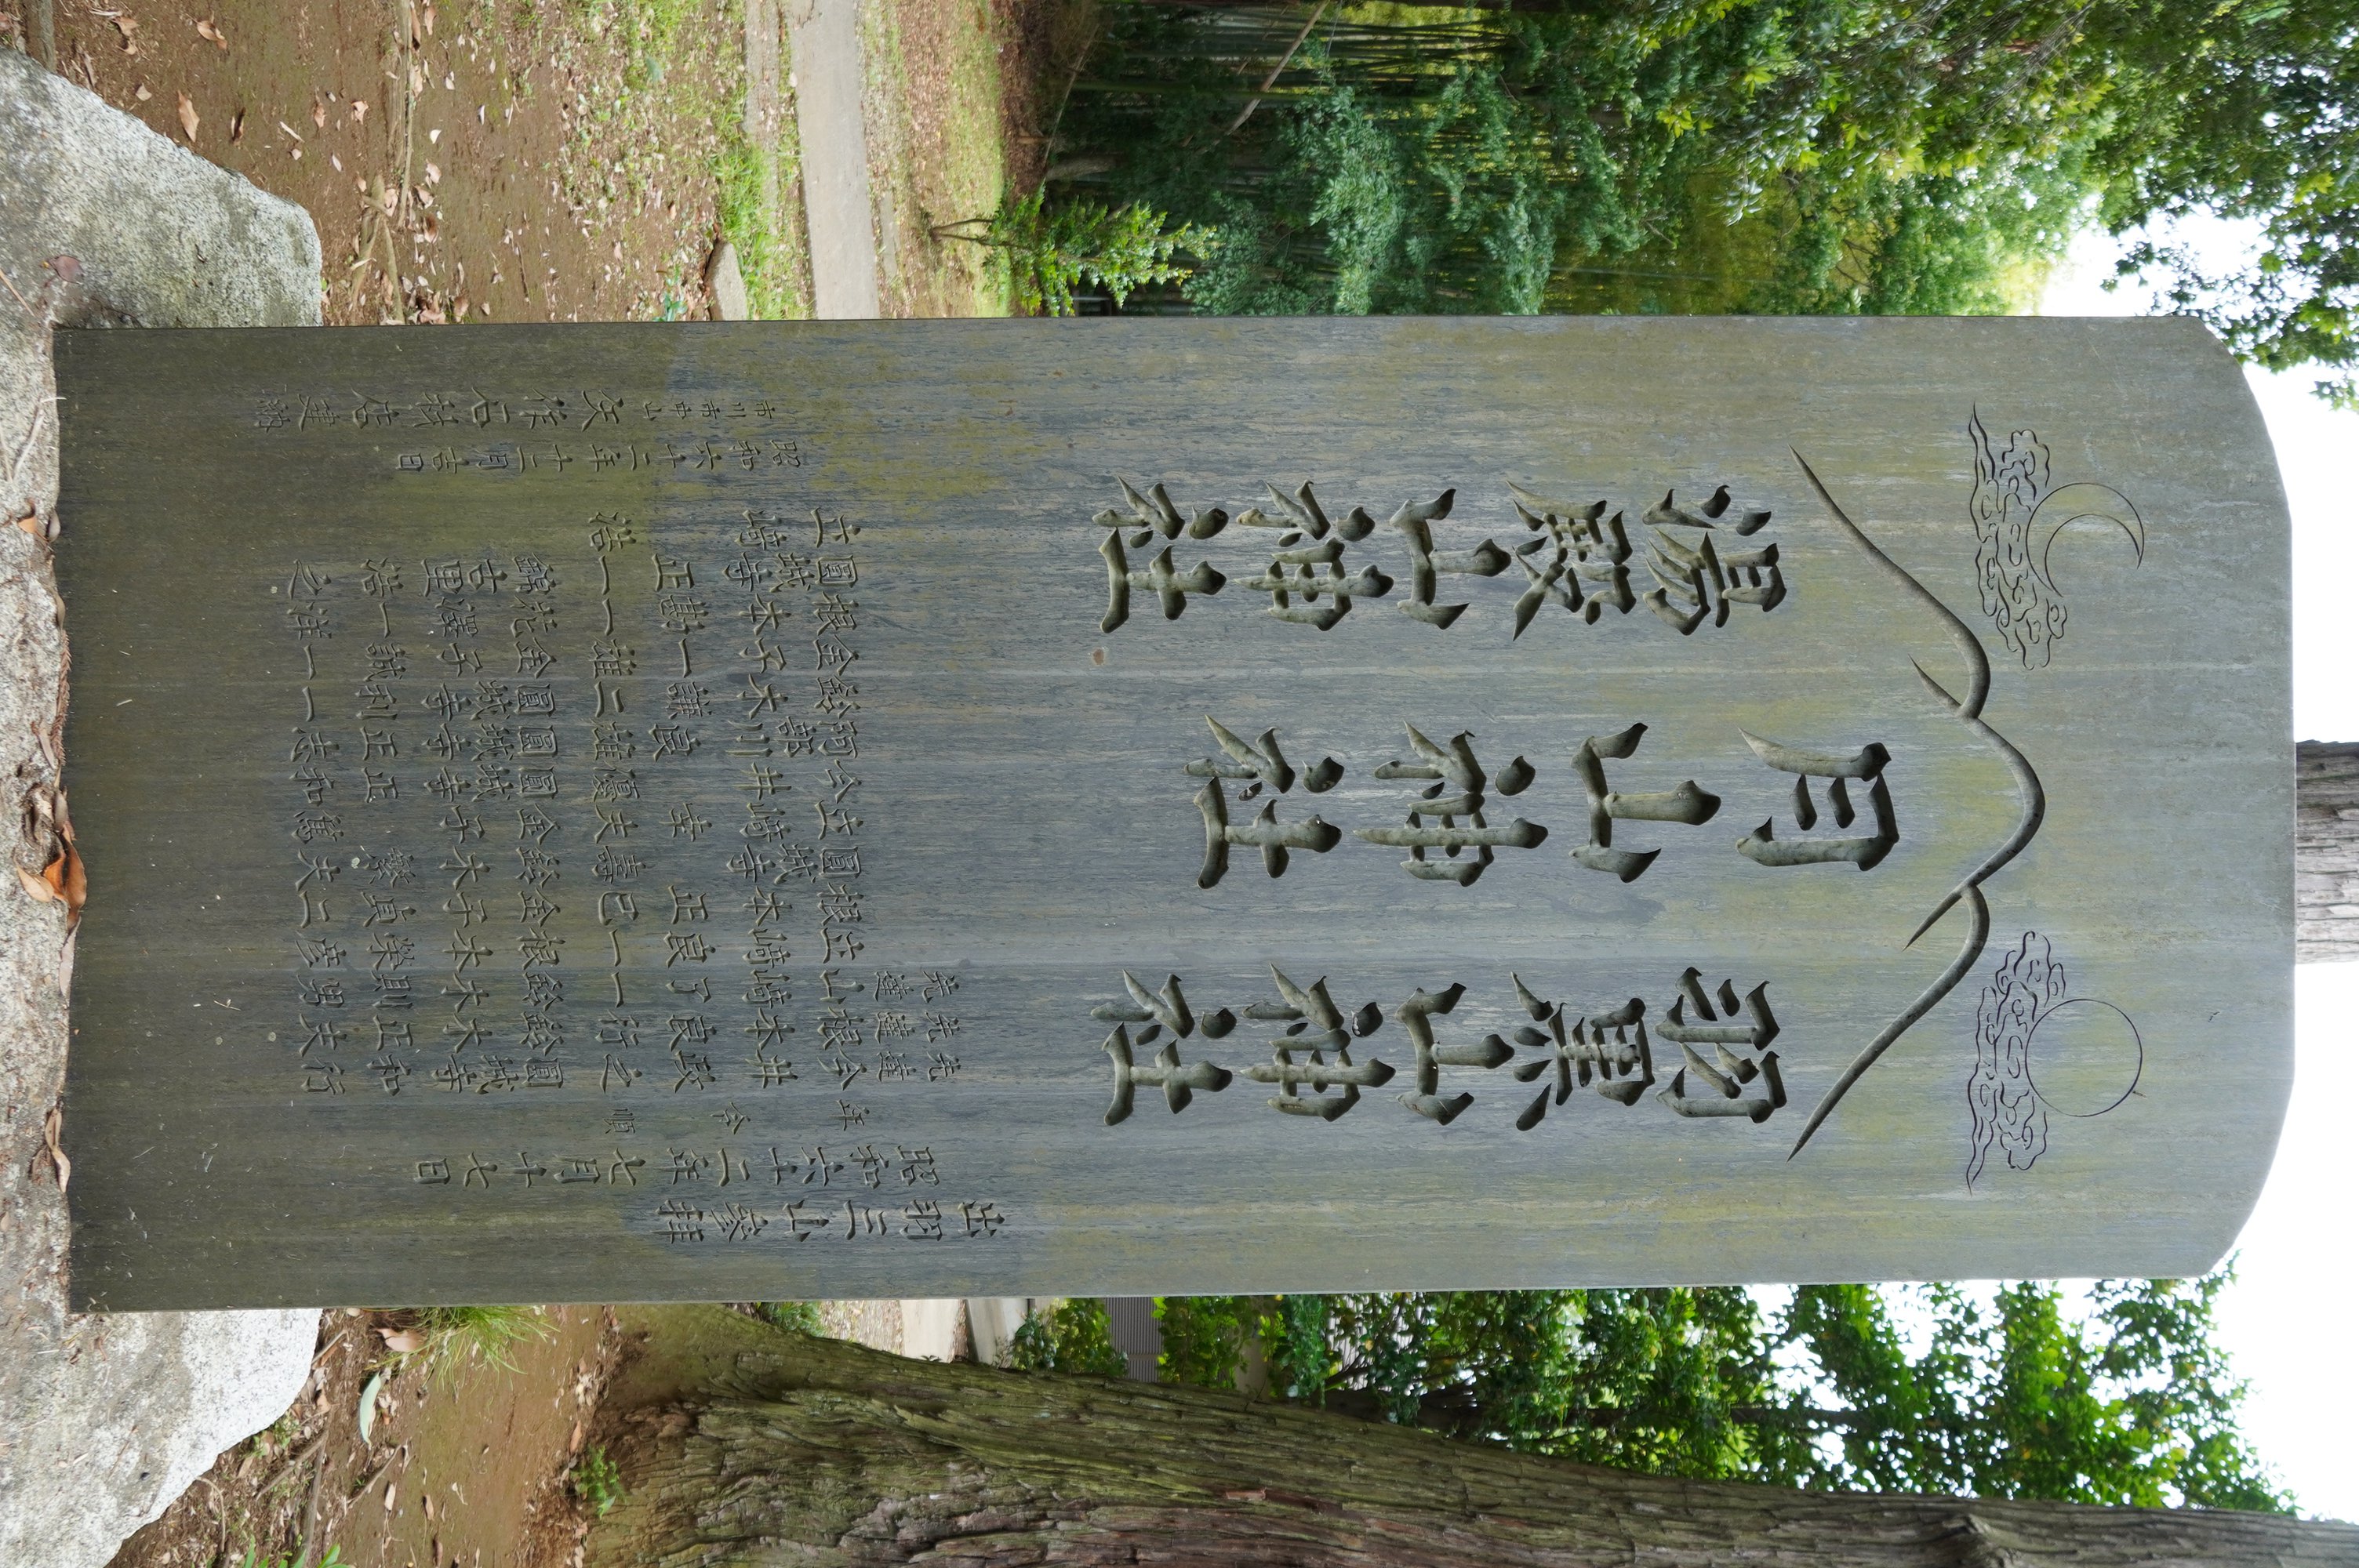 羽黒山神社
月山神社
湯殿山神社
出羽三山參拝
昭和六十二年七月十七日
年令順
先達 今井政之 圓城寺和行
先達 根本良行 鈴木正夫
先達 山崎了一 鈴木則男
立崎良一 根本榮彦
根本正巳 金子貞二
圓城寺壽 鈴木繁夫
立崎幸夫 金子萬
今井優 圓城寺正和
阿部川貞雄 圓城寺正志
鈴木謙二 圓城寺利一
金子一雄 金子誠一
根本勘一 花澤一洋
圓城寺正一 錦古里浩之
立崎浩
昭和六十二年十二月吉日
市川市中山 矢作石材店建納